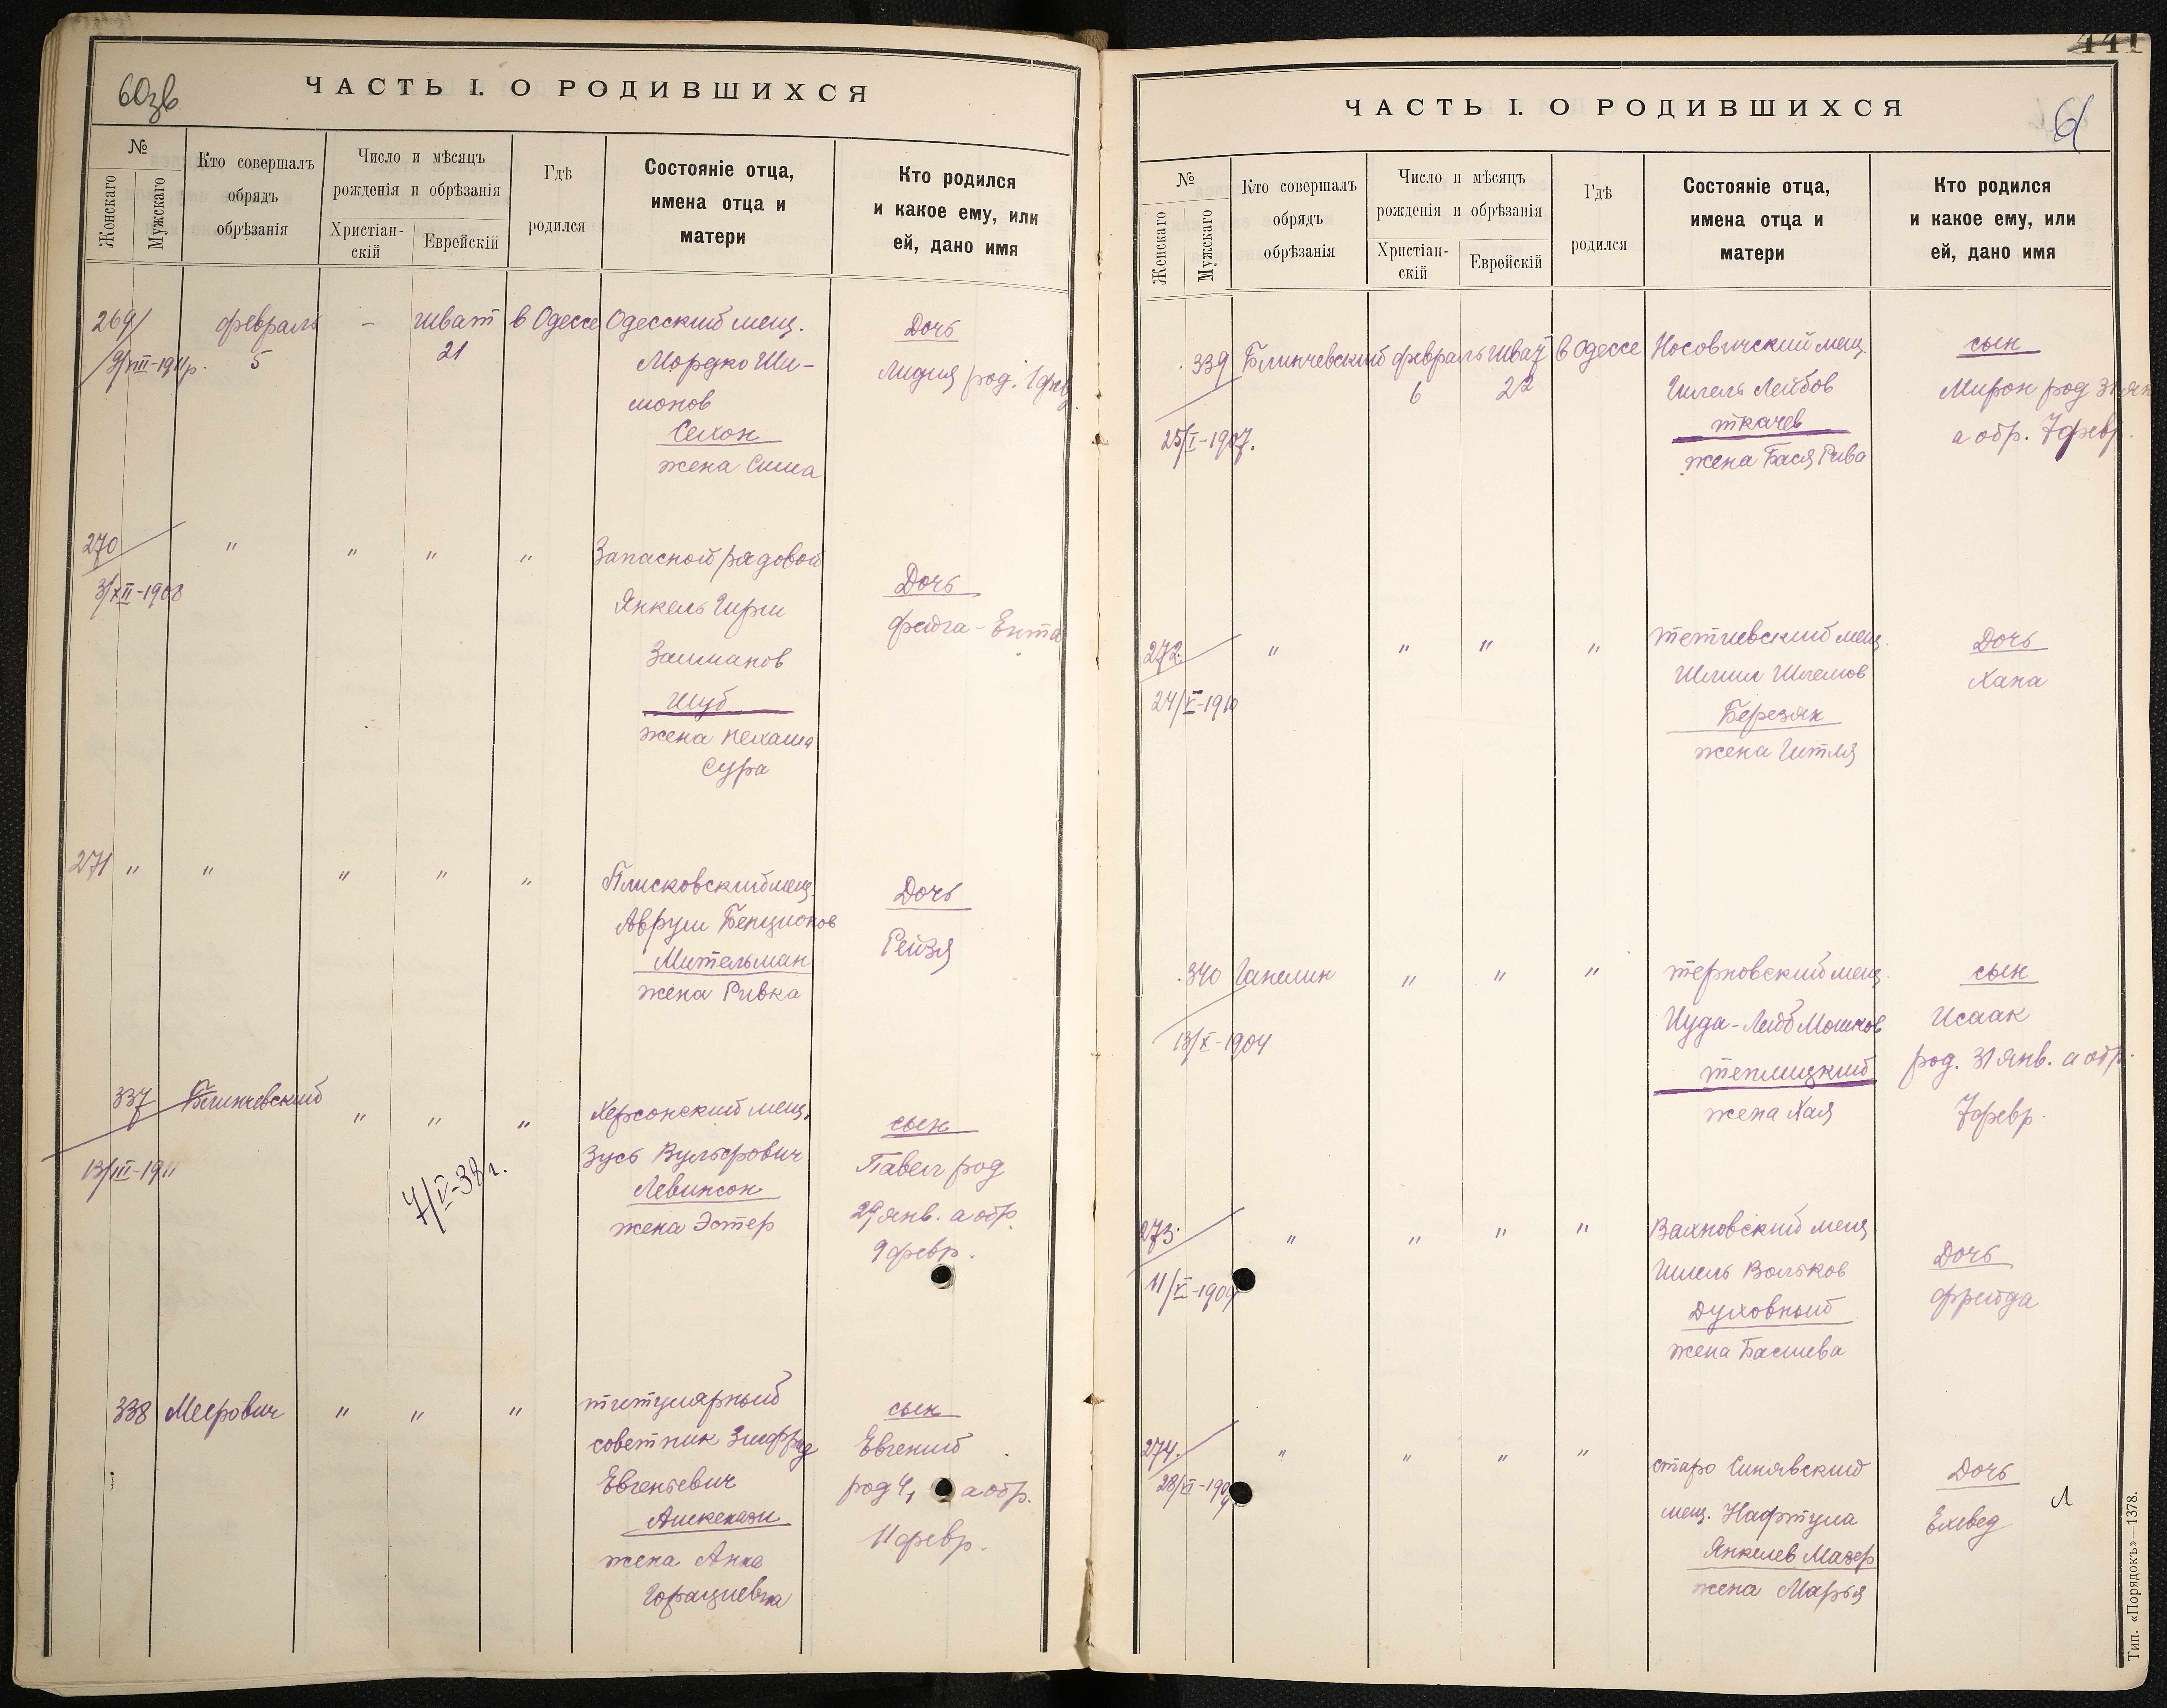 60зв
ЧАСТЬ I. О РОДИВШИХСЯ
№
Женскаго
Мужскаго
Кто совершалъ
обрядъ
обрѣзанія
Число и мѣсяцъ
рожденія и обрѣзанія
Христіан-
скій
Еврейскій
Гдѣ
родился
Состояніе отца,
имена отца и
матери
Кто родился
и какое ему, или
ей, дано имя
269/ февраль - шват в Одессе Одесский мещ. Дочь
5 21 Мордко Ши-
монов
Лидия род. 1 февр.
Сехон
жена Сима
270 " " " " Запасной рядовой
3/XII-1908
Янкель Гирш
Дочь
Залманов
Фейга-Ента
Шуб
жена Нехама
Сура
271 " " " " " Плисковский мещ.
Аврум Бенционов
Дочь
Мительман
Рейзя
жена Ривка
337 Блинчевский " " " Херсонский мещ.
13/III-1911
7/V-38 г.
Зусь Вульфович
Левинсон
жена Эстер
сын
Павел род
29 янв. а обр.
9 февр.
338 Меерович " " " титулярный
советник
Евгеньевич
Ашкенази
жена Анна
Горациевна
сын
Евгений
род 4, а обр.
11 февр.
441
61
ЧАСТЬ I. О РОДИВШИХСЯ
№
Женскаго
Мужскаго
Кто совершалъ
обрядъ
обрѣзанія
Число и мѣсяцъ
рожденія и обрѣзанія
Христіан-
скій
Еврейскій
Гдѣ
родился
Состояніе отца,
имена отца и
матери
Кто родился
и какое ему, или
ей, дано имя
339 Блинчевский февраль шват в Одессе Носовичский мещ.
25/I-1907.
6 22
Гилель Лейбов
ткачев
жена Бася Рива
сын
Мирон род 31 янв
а обр. 7 февр.
272. " " " " тетиевский мещ.
24/V-1910
Шмил Шлемов
Березяк
жена Гитля
Дочь
Хана
340 Ганелин " " " терновский мещ.
13/X-1904
Иуда-Лейб Мошков
теплицкий
жена Хая
сын
Исаак
род. 31 янв. а обр.
7 февр.
273. " " " " Вахновский мещ
11/V-1909
Шмель Вольков
Духовный
жена Басшева
Дочь
Фрейда
274. " " " " старо Синявский
мещ. Нафтула
Янкелев Мазер
жена Марья
Дочь
Ехевед
Л
Тип. «Порядокъ»—1378.